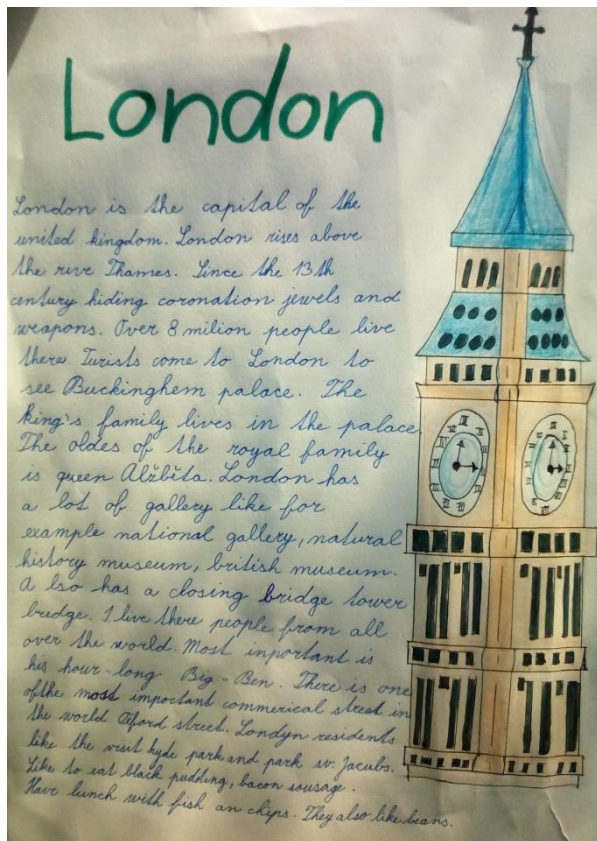 London
London is the capital of the
united kingdom. London rises above
the rive Thames. Since the 13th
century hiding coronation jewels and
weapons. Over 8 milion people live
there. Turists come to London to
see Buckinghem palace. The
king's family lives in the palace.
The oldes of the royal family
is queen Alžběta. London has
a lot of gallery like for
example national gallery, natural
history museum, british museum.
A lso has a closing bridge tower
bridge. I live there people from all
over the world. Most inportant is
his hour-long Big-Ben. There is one
ofthe most important commerical street in
the world Oxford street. Londyn residents
like the visit hyde park and park sv. Jacubs.
Like to eat black pudding, bacon sousage.
Have lunch with fish an chips. They also like beans.